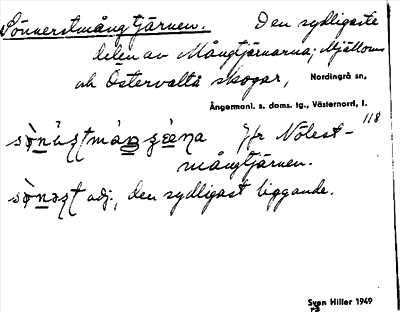 Sönnerstmångtjärnen. Den sydligaste
delen av Mångtjärnarna; Mjällom
och Östervalta skogar, Nordingrå sn,
Ångermanl. s. doms. tg., Västernorrl. l.
118
Jfr Nölest-
mångtjärnen.
adj., den sydligast liggande.
Sven Hiller 1949